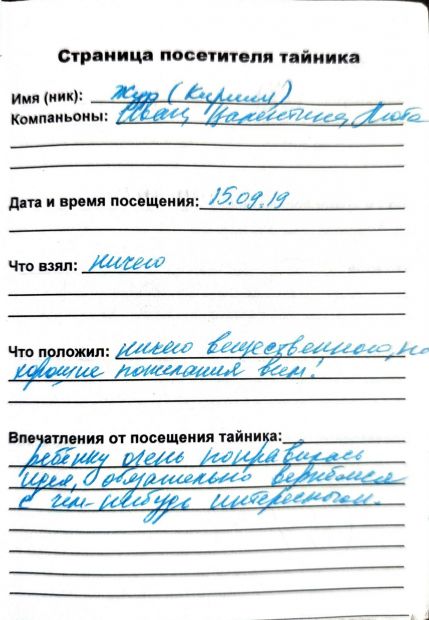 Страница посетителя тайника
Имя (ник): Жук (Кирилл)
Компаньоны: Иван, Валентина, Люба
Дата и время посещения: 15.09.19
Что взял: ничего
Что положил: ничего вещественного, но
хорошие пожелания всем!
Впечатления от посещения тайника:
ребёнку очень понравилась
идея, обязательно вернёмся
с чем-нибудь интересным.